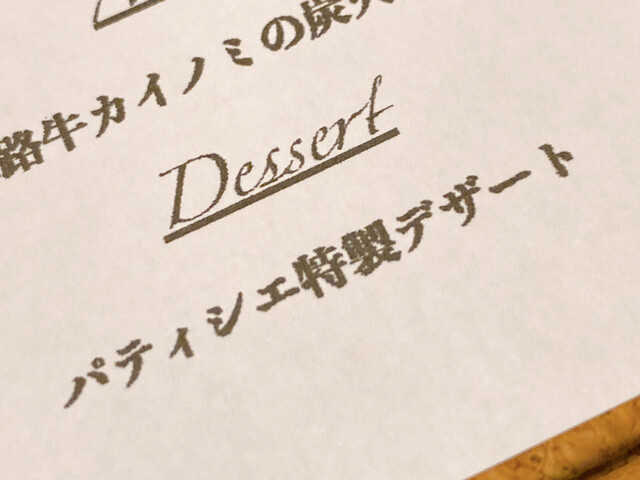 路牛カイノミの炭火
Dessert
パティシエ特製デザート